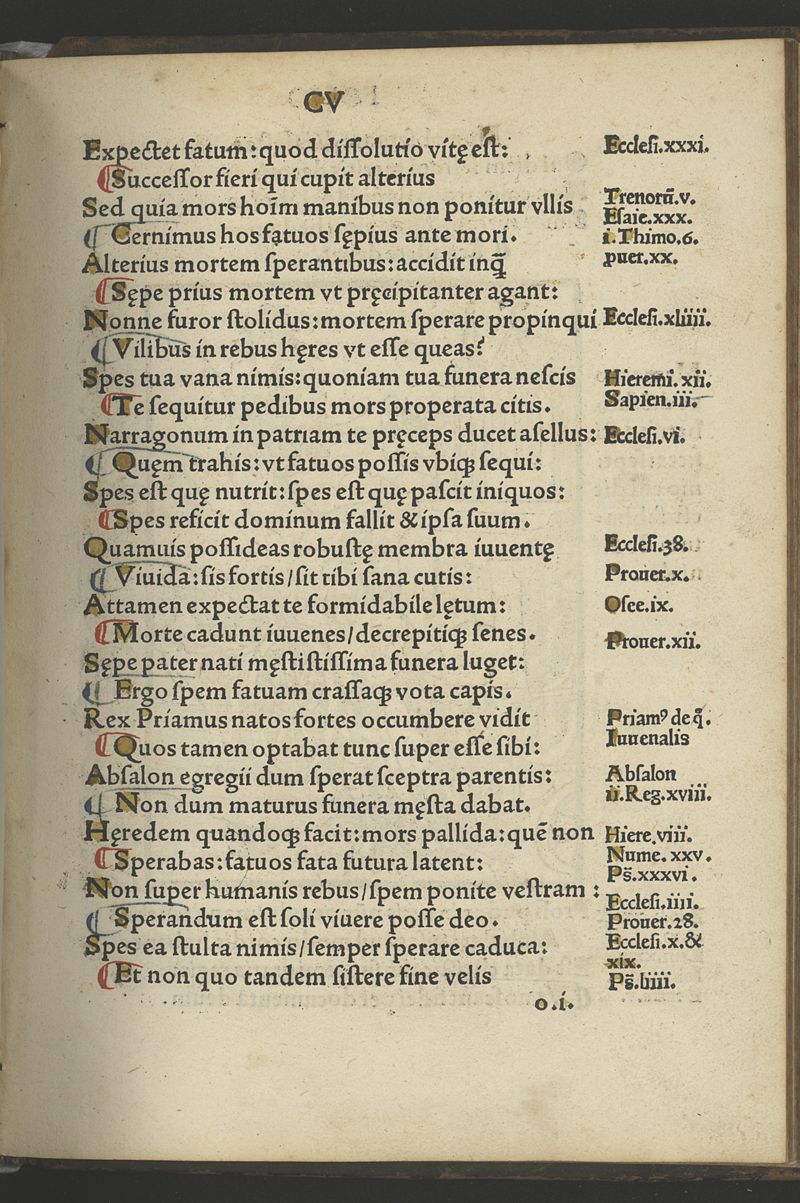 CV
Expectet fatum: quod diſſolutio vitę eſt:
Succeſſor fieri qui cupit alterius
Sed quia mors hoīm manibus non ponitur vllis
Cernimus hos fatuos ſępius ante mori.
Alterius mortem ſperantibus: accidit inq̃
Sępe prius mortem vt pręcipitanter agant:
Nonne furor ſtolidus: mortem ſperare propinqui
Vilibus in rebus hęres vt eſſe queas?
Spes tua vana nimis: quoniam tua funera neſcis
Te ſequitur pedibus mors properata citis.
Narragonum in patriam te pręceps ducet aſellus:
Quęm trahis: vt fatuos poſſis vbiqꝫ ſequi:
Spes eſt quę nutrit: ſpes eſt quę paſcit iniquos:
Spes reficit dominum fallit & ipſa ſuum.
Quamuis poſſideas robuſtę membra iuuentę
Viuida: ſis fortis/ ſit tibi ſana cutis:
Attamen expectat te formidabile lętum:
Morte cadunt iuuenes/ decrepitiqꝫ ſenes.
Sępe pater nati męſtiſtiſſima funera luget:
Ergo ſpem fatuam craſſaqꝫ vota capis.
Rex Priamus natos fortes occumbere vidit
Quos tamen optabat tunc ſuper eſſe ſibi:
Abſalon egregii dum ſperat ſceptra parentis:
Non dum maturus funera męſta dabat.
Hęredem quandoqꝫ facit: mors pallida: quē non
Sperabas: fatuos fata futura latent:
Non ſuper humanis rebus/ ſpem ponite veſtram:
Sperandum eſt ſoli viuere poſſe deo.
Spes ea ſtulta nimis/ ſemper ſperare caduca:
Et non quo tandem ſiſtere fine velis
o.i.
Eccleſi.xxxi.
Trenorū.v.
Eſaie.xxx.
i.Thimo.6.
puer.xx.
Eccleſi.xliiii.
Hieremi.xii.
Sapien.iii.
Eccleſi.vi.
Eccleſi.38.
Prouer.x.
Oſee.ix.
Prouer.xii.
Priamꝰ de q̃.
Iuuenalis
Abſalon
ii.Reg.xviii.
Hiere.viii.
Nume.xxv.
Ps̄.xxxvi.
Eccleſi.iiii.
Prouer.28.
Eccleſi.x.&
xix.
Ps̄.liiii.